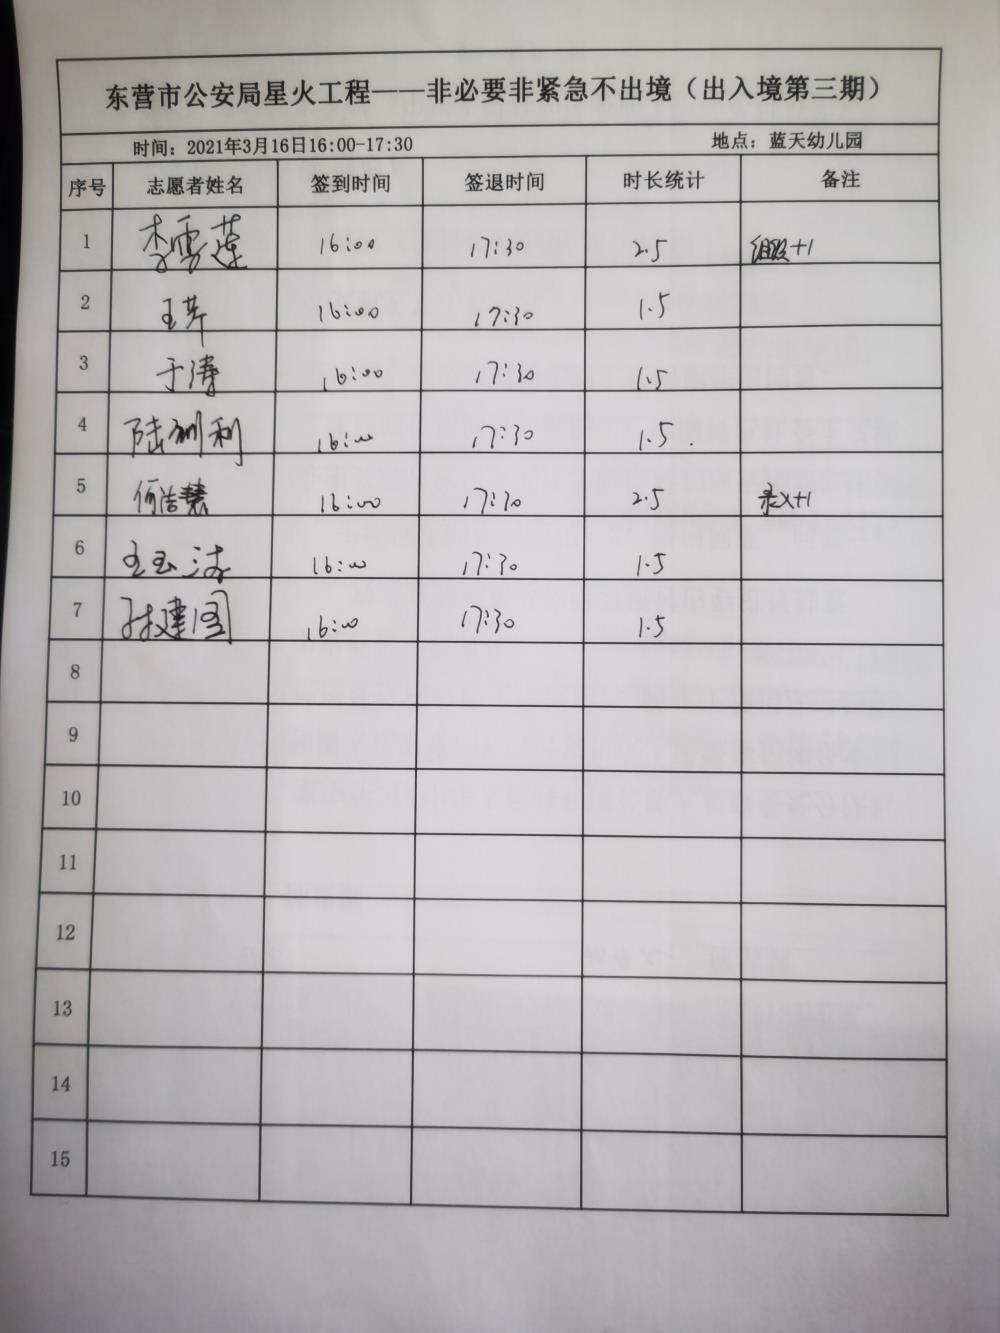 东营市公安局星火工程——非必要非紧急不出境（出入境第三期）
时间：2021年3月16日16:00-17:30 地点：蓝天幼儿园
序号 志愿者姓名 签到时间 签退时间 时长统计 备注
1 李雪莲 16:00 17:30 2.5 +1
2 王芹 16:00 17:30 1.5
3 于涛 16:00 17:30 1.5
4 陆利 16:00 17:30 1.5
5 何浩慧 16:00 17:30 2.5 录入+1
6 王玉洁 16:00 17:30 1.5
7 建国 16:00 17:30 1.5
8
9
10
11
12
13
14
15